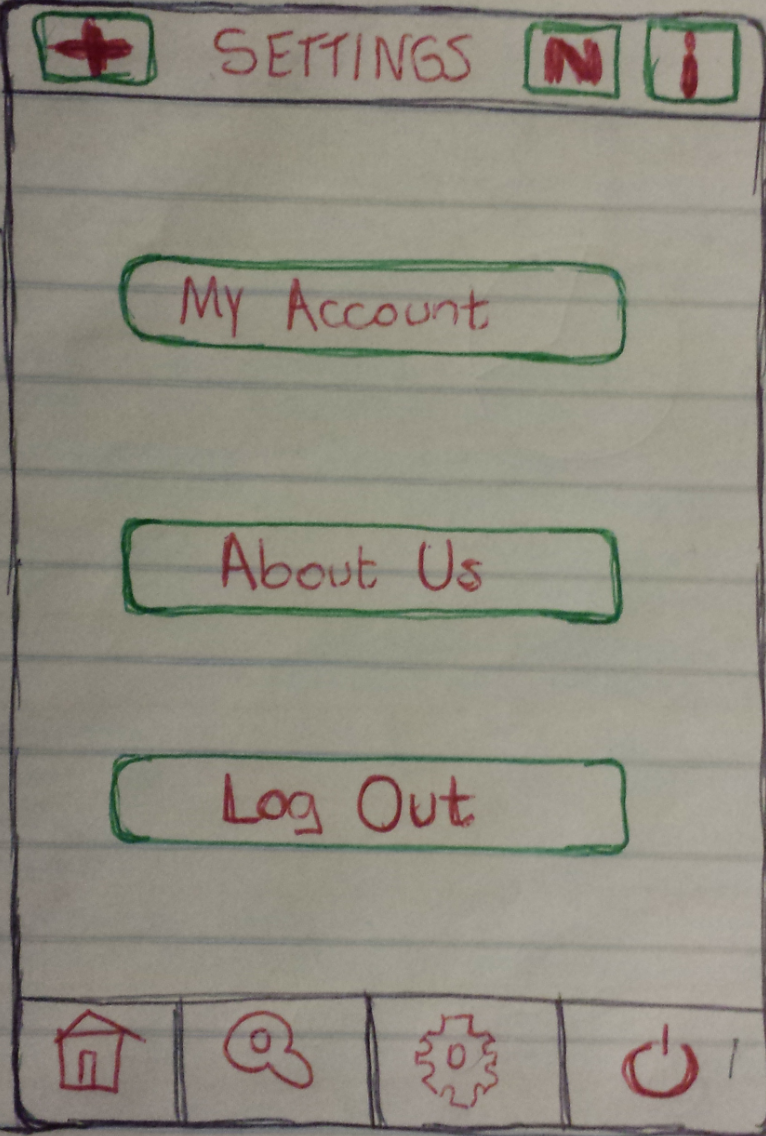 SETTINGS N i
My Account
About Us
Log Out